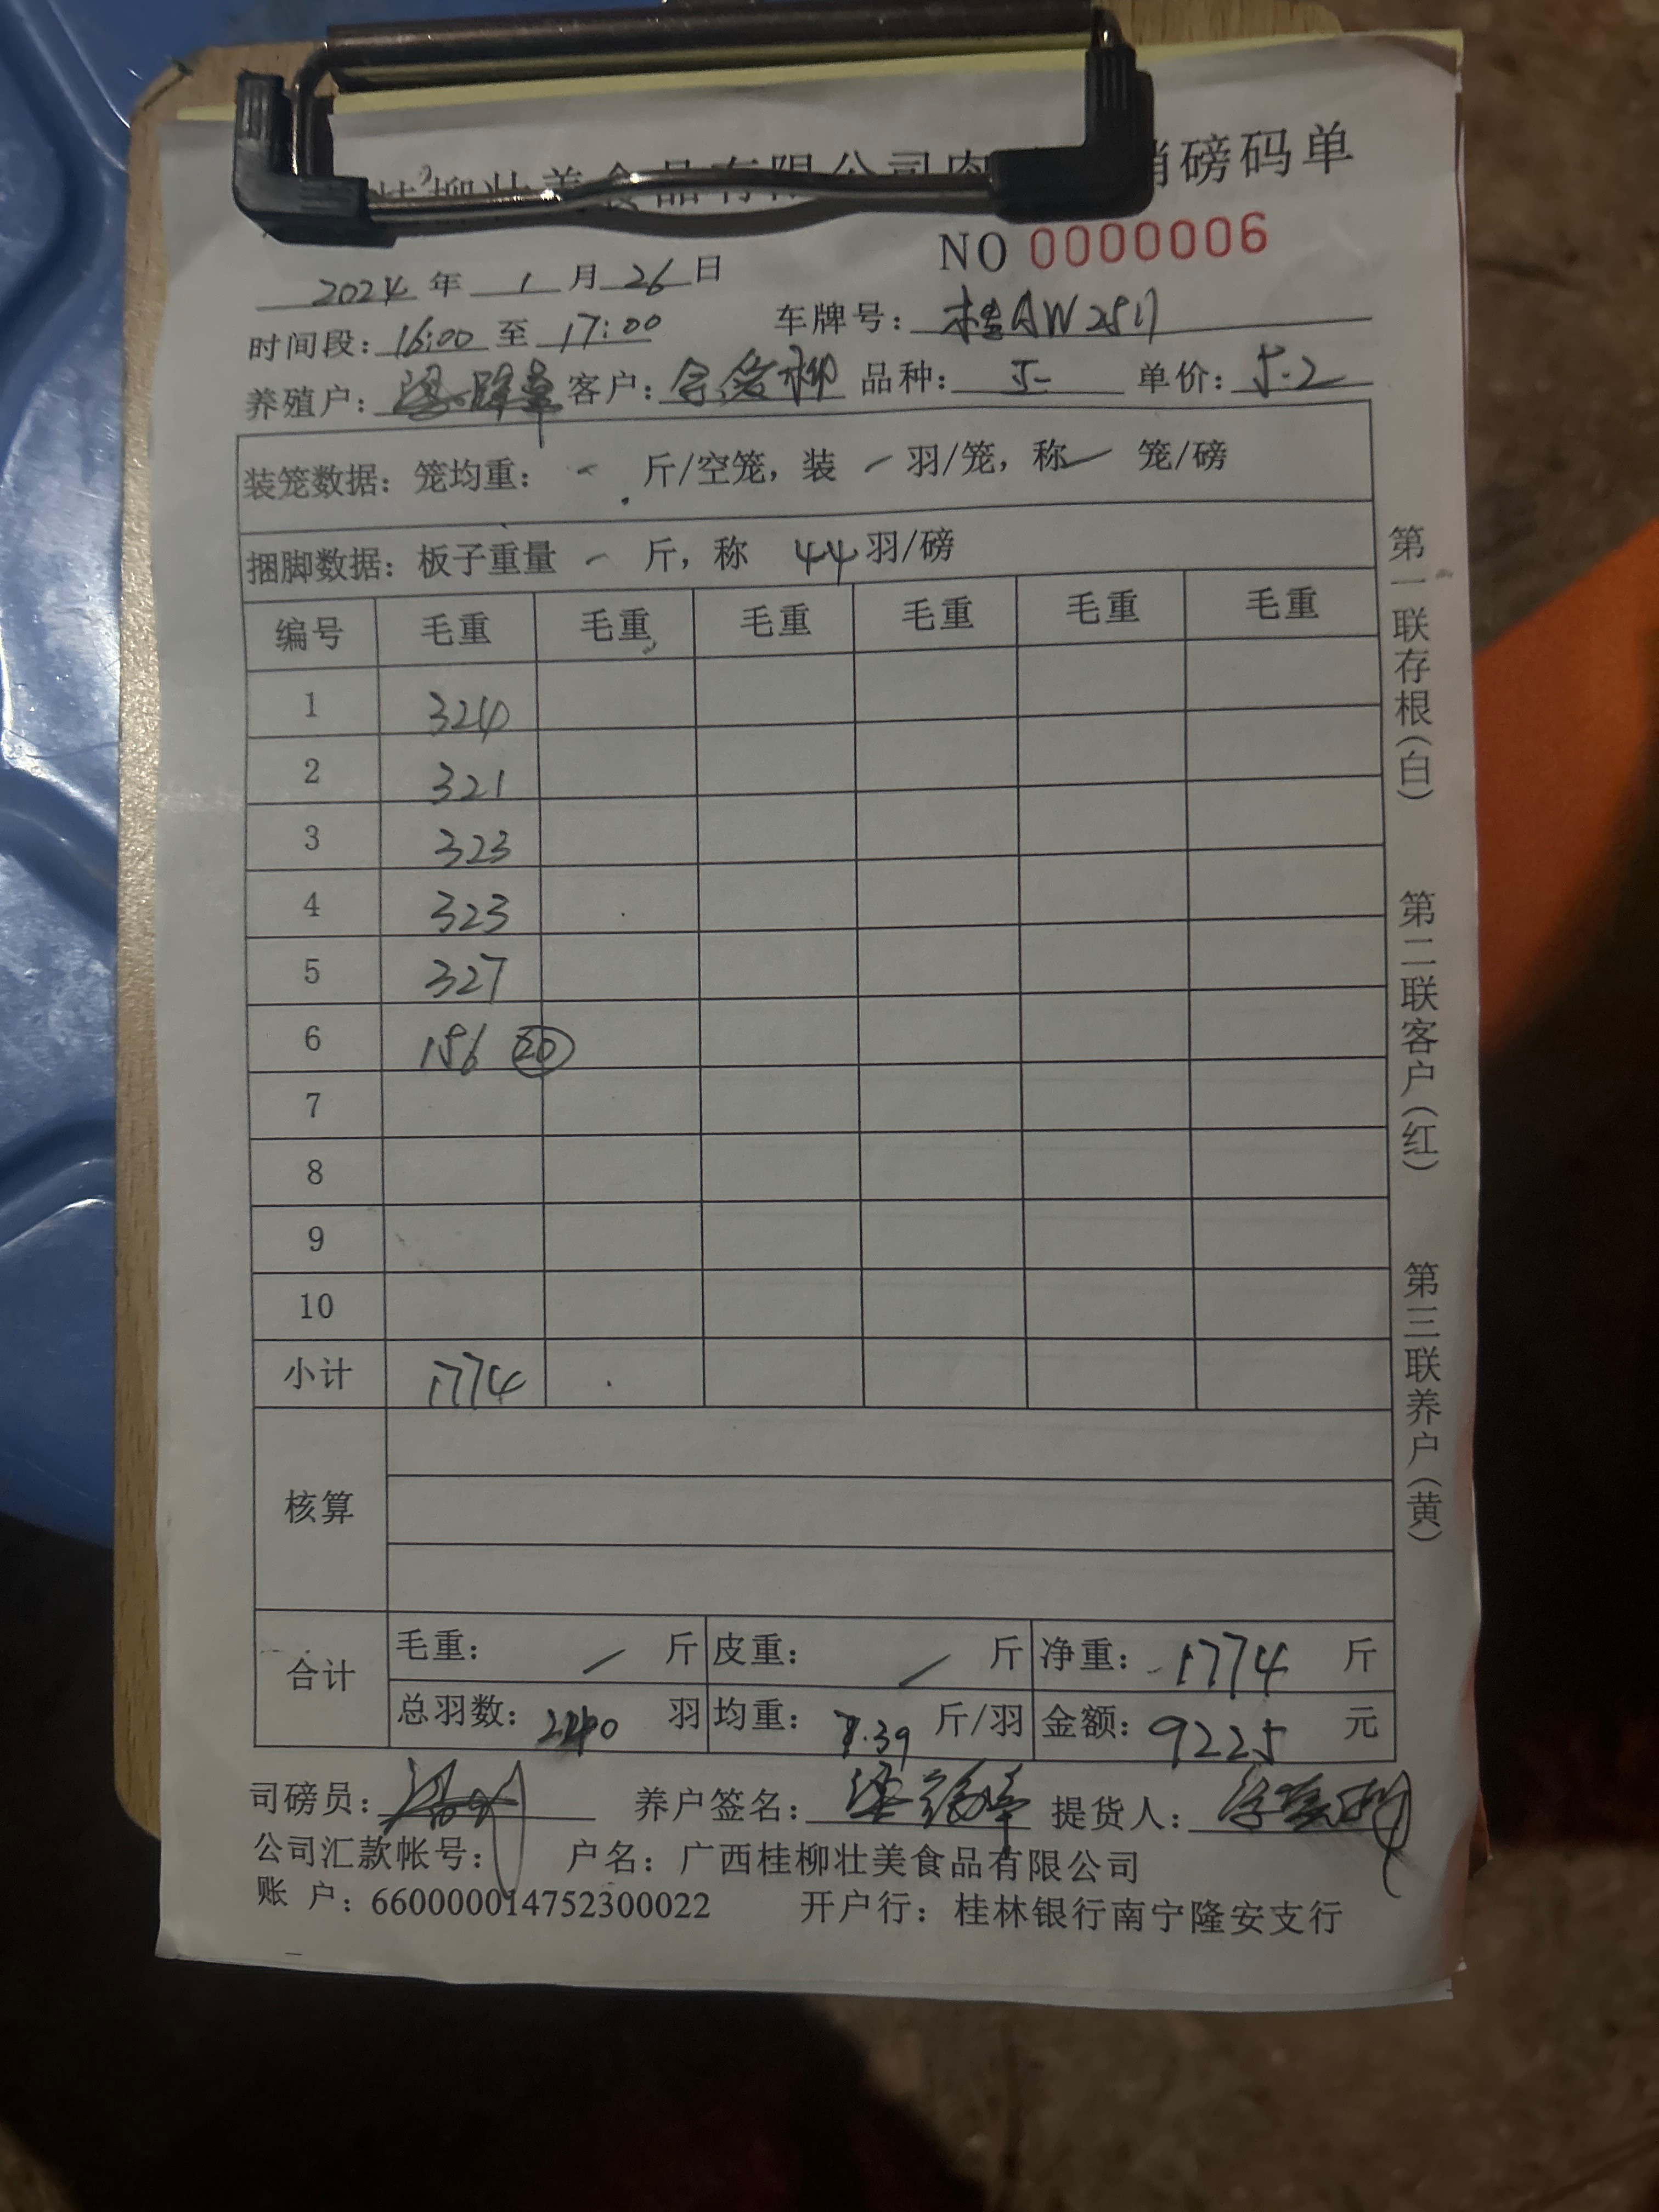 桂柳壮美食品有限公司肉 销磅码单
NO 0000006
2024 年 1 月 26 日
时间段: 16:00 至 17:00 车牌号: 桂AW2511
养殖户: 客户: 品种: 单价: 5.2
装笼数据: 笼均重: - 斤/空笼, 装 - 羽/笼, 称 - 笼/磅
捆脚数据: 板子重量 - 斤, 称 44 羽/磅
编号 毛重 毛重 毛重 毛重 毛重 毛重
1 324
2 321
3 323
4 323
5 327
6 156 20
7
8
9
10
小计 1774
核算
合计 毛重: / 斤 皮重: / 斤 净重: 1774 斤
总羽数: 240 羽 均重: 7.39 斤/羽 金额: 9225 元
司磅员: 养户签名: 提货人:
公司汇款帐号: 户名: 广西桂柳壮美食品有限公司
账 户: 660000014752300022 开户行: 桂林银行南宁隆安支行
第一联存根(白) 第二联客户(红) 第三联养户(黄)